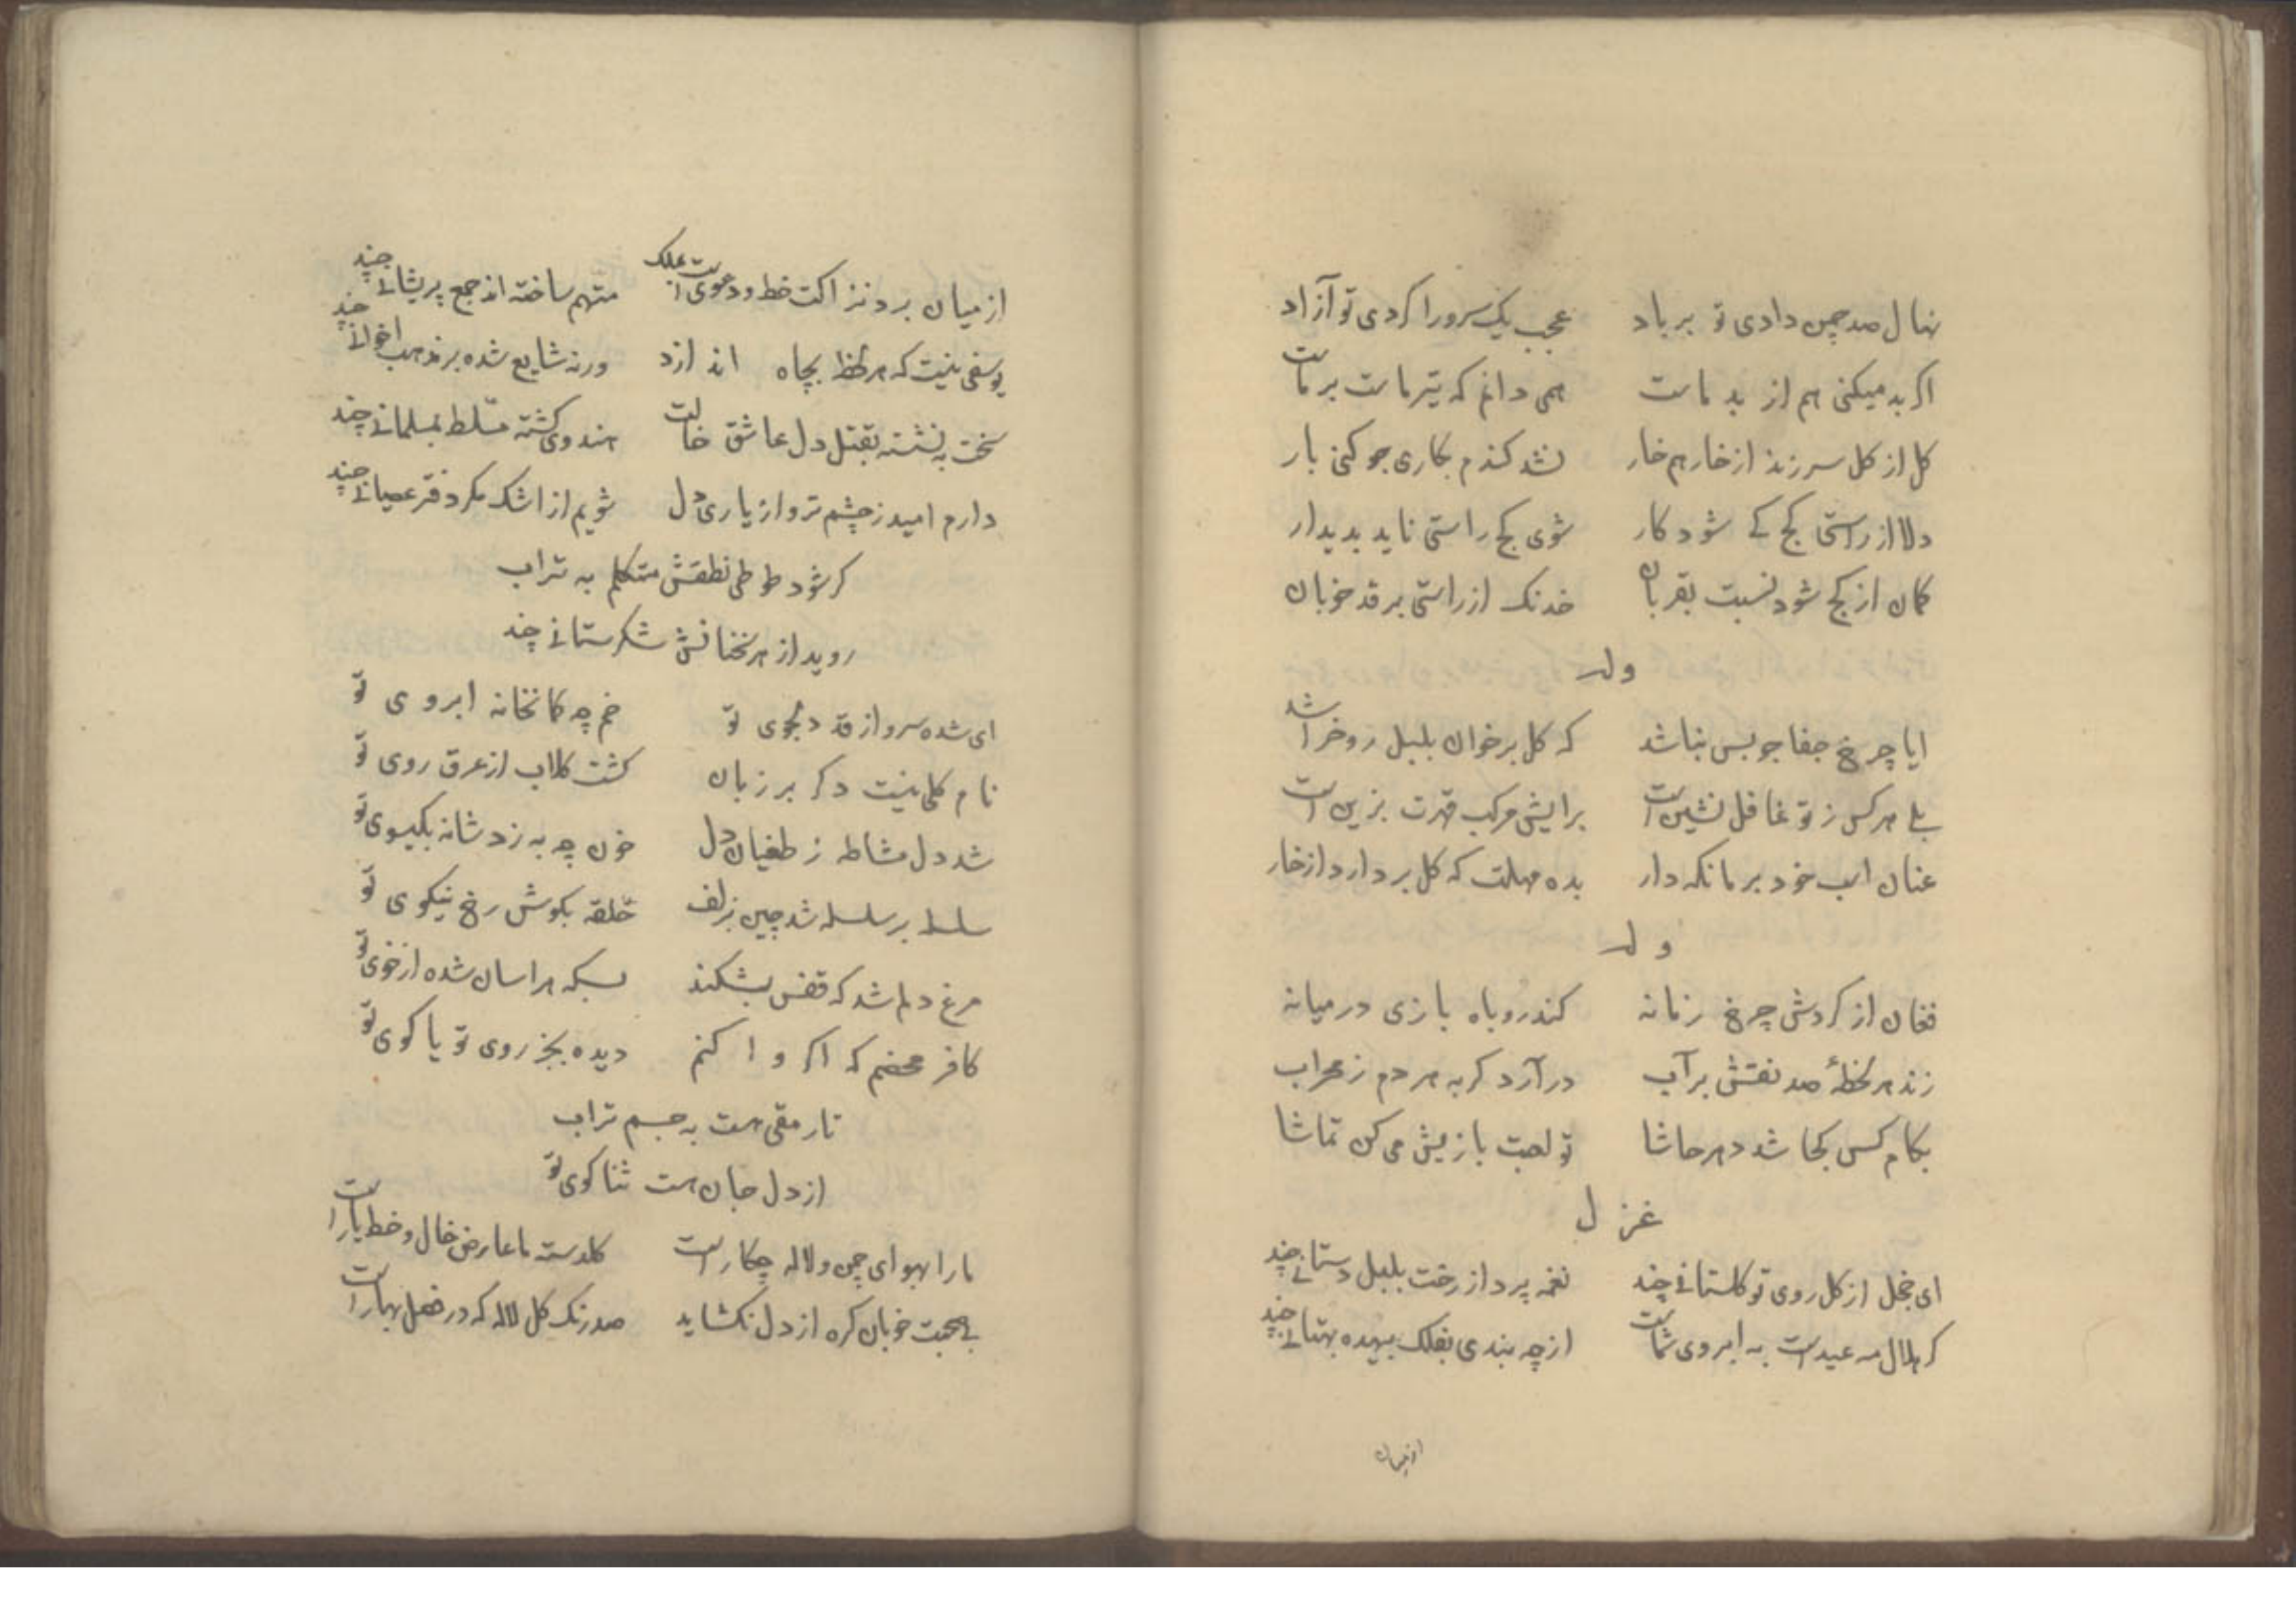 نهال صد چمن دادی تو برباد عجب یک سرو را کردی تو آزاد
اکر بد میکنی هم از بد ماست همی دانم که تیر ماست بر ماست
کل از کل سر زند از خار هم خار نشد کندم بکاری جو کنی بار
دلا از راستی کج کے شود کار شوی کج راستی ناید بدیدار
کمان از کج شود نسبت بقربان خدنک از راستی بر قد خوبان
وله
ایا چرخ جفا جو بس نباشد که کل برخوان بلبل روخراشد
بلے هر کس ز تو غافل نشین است برایش مرکب قهرت بزین است
عنان اسب خود بر ما نکه دار بده مهلت که کل بردارد از خار
وله
فغان از کردش چرخ زمانه کند روباه بازی درمیانه
زند هر لحظهٔ صد نقش بر آب در آرد کربه هر دم ز محراب
بکام کس کجا شد دهر حاشا تو لعبت بازیش می کن تماشا
غزل
ای خجل از کل روی تو کلستانے چند نغمه پرداز رخت بلبل دستانے چند
کر هلال مه عید است به ابروی شماست از چه بندی بفلک بیهده بهتانے چند
از میان
از میان برد نزاکت خط و دعوی است بملک متهم ساخته اند جمع پریشانے چند
یوسفی نیست که هر لحظ بچاه اندازد ورنه شایع شده بر مذهب اخوانے چند
سخت بنشسته بقتل دل عاشق خالت هندوی کشته مسلط بمسلمانے چند
دارم امید ز چشم تر و از یاری دل شویم از اشک مکر دفتر عصیانے چند
کر شود طوطی نطقش متکلم به تراب
روید از هر سخنانش شکرستانے چند
ای شده سرو از قد دلجوی تو خم چه کمانخانه ابروی تو
نام کلی نیست دکر بر زبان کشت کلاب از عرق روی تو
شد دل مشاطه ز طغیان دل خون چه به زد شانه بکیسوی تو
سلسله بر سلسله شد چین زلف حلقه بکوش رخ نیکوی تو
مرغ دلم شد که قفس بشکند بسکه هراسان شده از خوی تو
کافر محضم که اکر وا کنم دیده بجز روی تو یا کوی تو
تا رمقی هست به جسم تراب
از دل جان هست ثنا کوی تو
ما را بهوای چمن و لاله چکار است کلدسته ما عارض خال و خط یار است
بے صحبت خوبان کره از دل نکشاید صد رنک کل لاله که در فصل بهار است